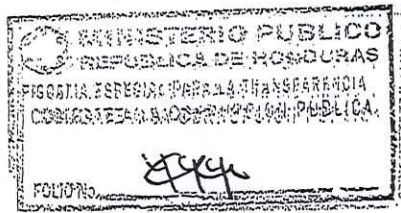 MINISTERIO PUBLICO
REPUBLICA DE HONDURAS
FISCALIA ESPECIAL PARA LA TRANSPARENCIA
COMBATE A LA CORRUPCION PUBLICA
FOLIO No.